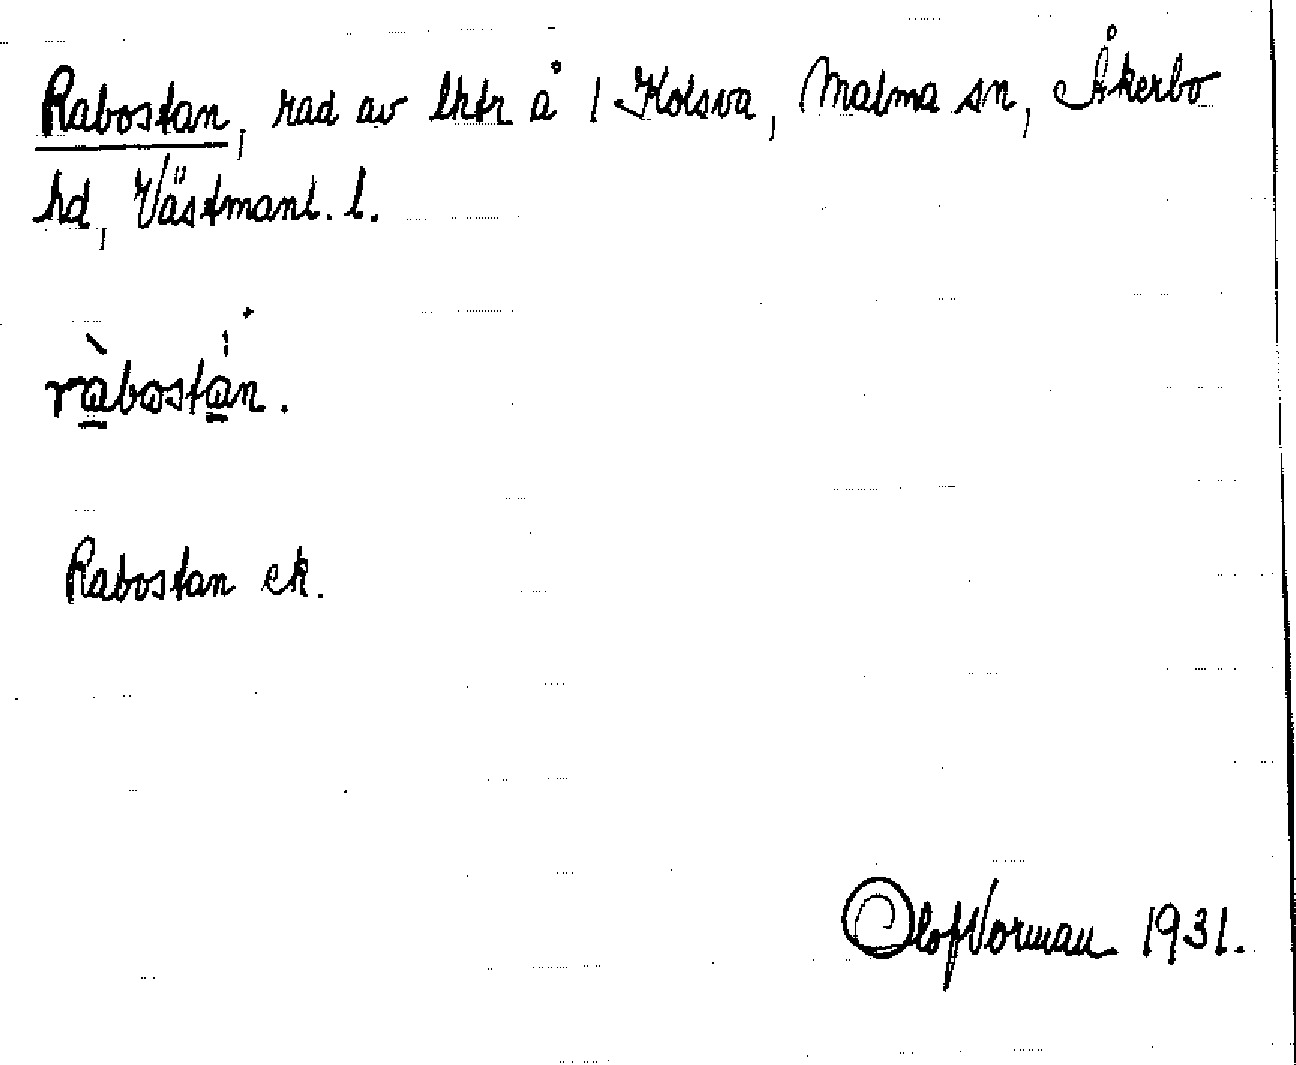 Rabostan, rad av lhtr å 1 Kolsva, Malma sn, Åkerbo
hd, Västmanl. l.
ràbostán.
Rabostan ek.
Olof Norman 1931.